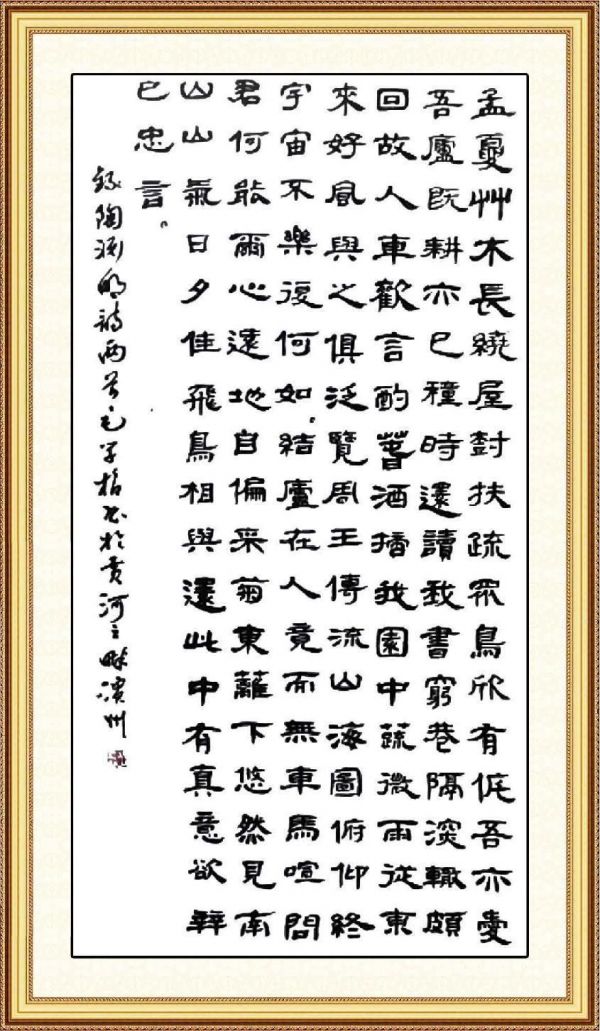 孟夏艸木長繞屋尌扶疏眾鳥欣有侂吾亦愛
吾廬既耕亦已種時還讀我書窮巷隔深轍頗
回故人車歡言酌萅酒摘我園中蔬微雨從東
來好風與之俱泛覽周王傳流山海圖俯仰終
宇宙不樂復何如。結廬在人竟而無車馬喧問
君何能爾心遠地自偏采菊東籬下悠然見南
山山氣日夕佳飛鳥相與還此中有真意欲辯
已忠言。
錄陶淵明詩兩首毛學楷書於黃河之畔濱州